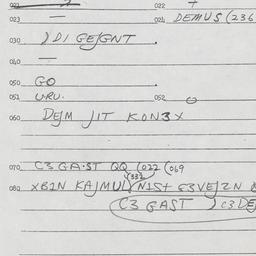 022
023 —
024 DEMUS (236
030 ) DI GEJGNT .
040 —
050 GO
051 URU. 052 O
060 DEJM JIT KON3X
070 C3 GA·ST QQ (022 (069
080 XB1N KAJMUL N1S+ C3VEJ2N
C3 GAST ) C3DEJ